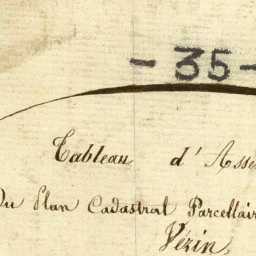 - 35 -
Tableau d'Asse
Du Plan Cadastral Parcellair
Vézin,